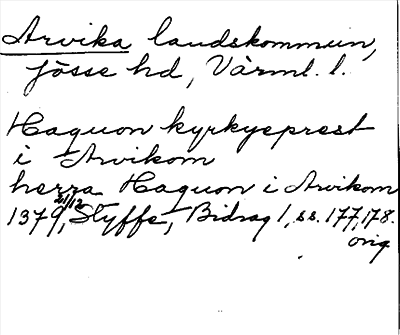 Arvika landskommun,
Jösse hd, Värml. l.
Haquon kyrkyeprest
i Arvikom
herra Haquon i Arvikom
1379 21/12, Styffe, Bidrag 1, ss. 177, 178.
orig